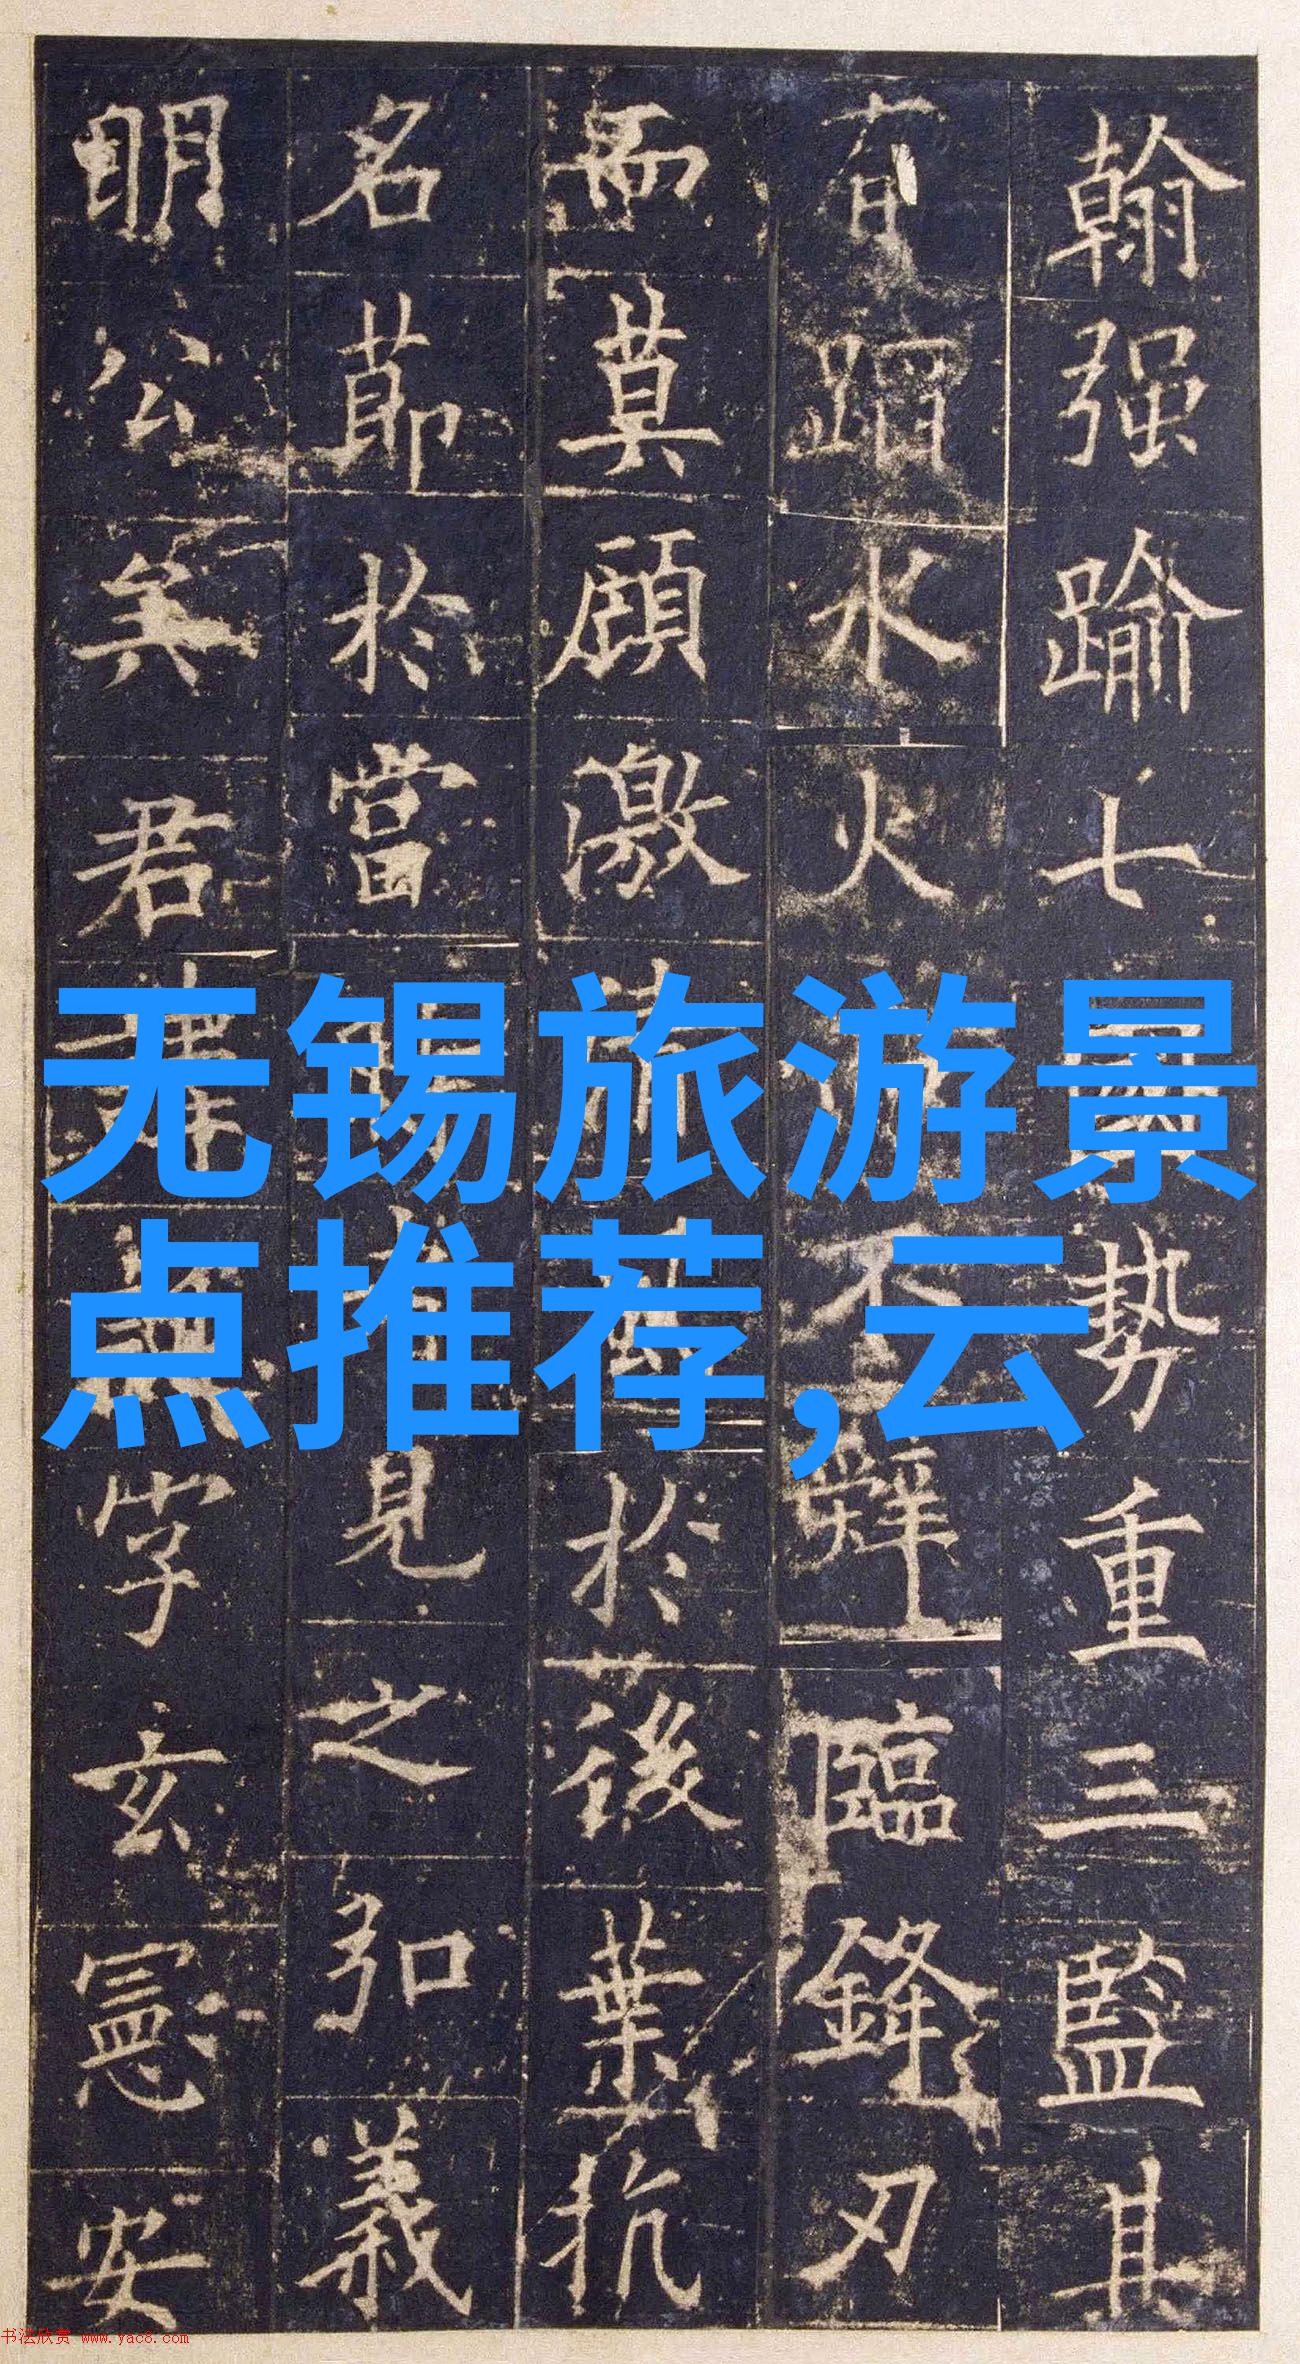 翰强踰七势重三監其
有蹈水火不辤臨鋒刃
而莫顧激於後葉抗
名節於當見之弘義
明公矣君字玄憲安
无锡旅游景
点推荐,云
书法欣赏 www.yac8.com